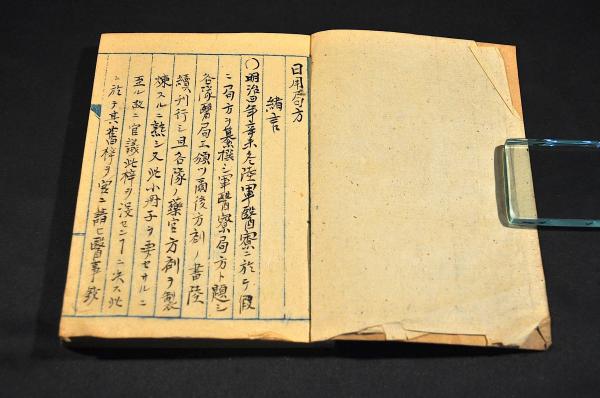 日用局方
緒言
〇明治四年辛未冬陸軍醫寮ニ於テ假
ニ局方ヲ纂撰シ軍醫寮局方ト題シ
各隊醫局ニ頒ツ爾後方劑ノ書陸
續刊行シ且各隊ノ藥官方劑ヲ製
煉スルニ熟シ又此小冊子ヲ要セサルニ
至ル故ニ官議此梓ヲ没センヿニ决ス此
ニ於テ其舊梓ヲ官ニ請ヒ醫事